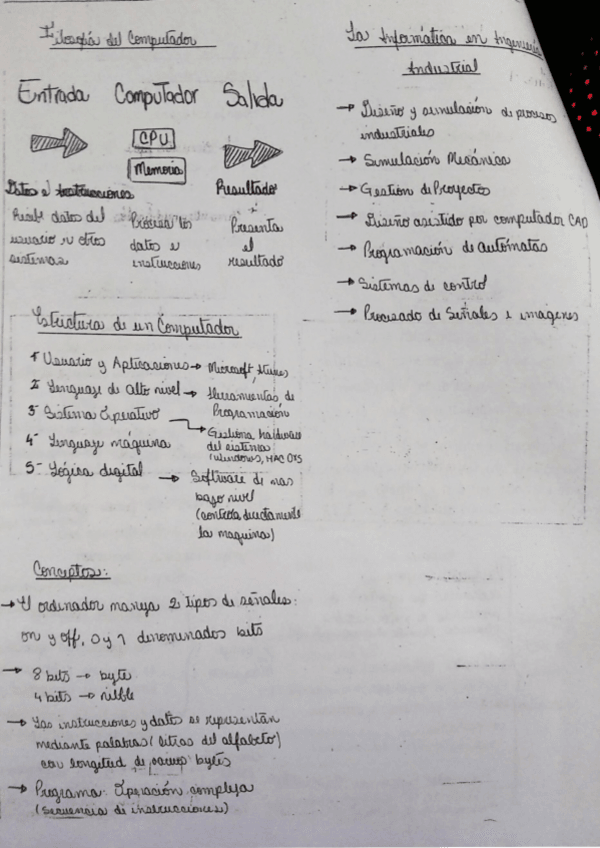 Filosofía del Computador
Entrada Computador Salida
CPU
Memoria
Datos e Instrucciones
Resultado
Recibe datos del
usuario u otros
sistemas
Procesa los
datos e
instrucciones
Presenta
el
resultado
Estrictura de un Computador
1- Usuario y Aplicaciones → Microsoft, itunes
2- Lenguaje de Alto nivel → Herramientas de
Programación
3- Sistema Operativo → Gestiona hardware
del sistema
(windows, MAC OTS
4- Lenguaje máquina
5- Lógica digital → Software de mas
bajo nivel
(controla directamente
la maquina)
Conceptos:
→ El ordenador maneja 2 tipos de señales:
on y off, 0 y 1 denominados bits
→ 8 bits → byte
4 bits → nibble
→ Las instrucciones y datos se representan
mediante palabras (letras del alfabeto)
con longitud de bytes
→ Programa: Operación compleja
(secuencia de instrucciones)
La Informática en Ingeniería
Industrial
→ Diseño y simulación de procesos
industriales
→ Simulación Mecánica
→ Gestión de Proyectos
→ Diseño asistido por computador CAD
→ Programación de autómatas
→ Sistemas de control
→ Procesado de Señales e imagenes